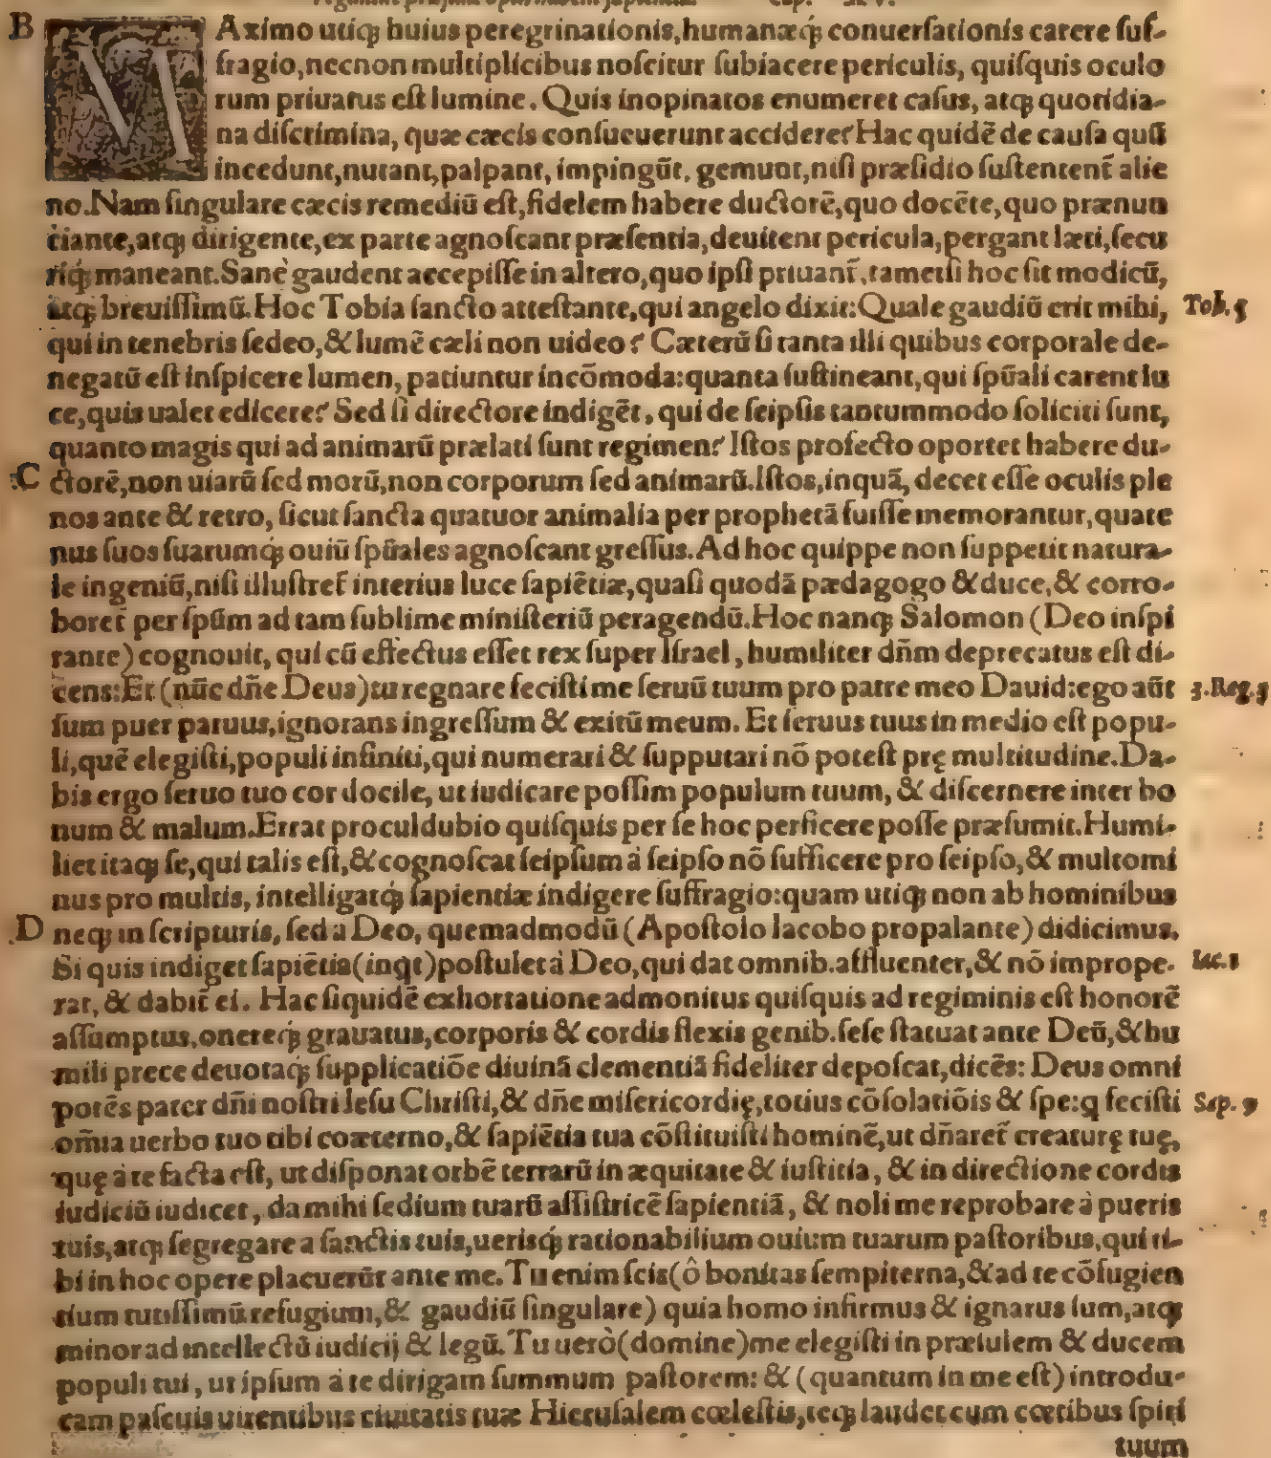 Cap. XV.
B MAximo utiqꝫ huius peregrinationis, humanæqꝫ conuerſationis carere ſuf-
fragio, necnon multiplicibus noſcitur ſubiacere periculis, quiſquis oculo
rum priuatus eſt lumine. Quis inopinatos enumeret caſus, atqꝫ quotidia-
na diſcrimina, quæ cæcis conſueuerunt accidere? Hac quidē de cauſa quū
incedunt, nutant, palpant, impingūt, gemunt, niſi præſidio ſuſtentent̄ alie
no. Nam ſingulare cæcis remediū eſt, fidelem habere ductorē, quo docēte, quo prænun
ciante, atqꝫ dirigente, ex parte agnoſcant præſentia, deuitent pericula, pergant læti, ſecu
riqꝫ maneant. Sanè gaudent accepiſſe in altero, quo ipſi priuant̄, tametſi hoc ſit modicū,
atqꝫ breuiſſimū. Hoc Tobia ſancto atteſtante, qui angelo dixit: Quale gaudiū erit mihi, Tob. 5
qui in tenebris ſedeo, & lumē cæli non uideo? Cæterū ſi tanta illi quibus corporale de-
negatū eſt inſpicere lumen, patiuntur incōmoda: quanta ſuſtineant, qui ſpūali carent lu
ce, quis ualet edicere? Sed ſi directore indigēt, qui de ſeipſis tantummodo ſoliciti ſunt,
quanto magis qui ad animarū prælati ſunt regimen? Iſtos profecto oportet habere du-
C ctorē, non uiarū ſed morū, non corporum ſed animarū. Iſtos, inquā, decet eſſe oculis ple
nos ante & retro, ſicut ſancta quatuor animalia per prophetā fuiſſe memorantur, quate
nus ſuos ſuarumqꝫ ouiū ſpūales agnoſcant greſſus. Ad hoc quippe non ſuppetit natura-
le ingeniū, niſi illuſtret̄ interius luce ſapiētiæ, quaſi quodā pædagogo & duce, & corro-
boret̄ per ſpūm ad tam ſublime miniſteriū peragendū. Hoc nanqꝫ Salomon (Deo inſpi
rante) cognouit, qui cū effectus eſſet rex ſuper Iſrael, humiliter dn̄m deprecatus eſt di-
cens: Et (nūc dn̄e Deus) tu regnare feciſti me ſeruū tuum pro patre meo Dauid: ego aūt 3. Reg. 3
ſum puer paruus, ignorans ingreſſum & exitū meum. Et ſeruus tuus in medio eſt popu-
li, quē elegiſti, populi infiniti, qui numerari & ſupputari nō poteſt prę multitudine. Da-
bis ergo ſeruo tuo cor docile, ut iudicare poſſim populum tuum, & diſcernere inter bo
num & malum. Errat proculdubio quiſquis per ſe hoc perficere poſſe præſumit. Humi-
liet itaqꝫ ſe, qui talis eſt, & cognoſcat ſeipſum à ſeipſo nō ſufficere pro ſeipſo, & multomi
nus pro multis, intelligatqꝫ ſapientiæ indigere ſuffragio: quam utiqꝫ non ab hominibus
D neqꝫ in ſcripturis, ſed à Deo, quemadmodū (Apoſtolo Iacobo propalante) didicimus.
Si quis indiget ſapiētia (inqt) poſtulet à Deo, qui dat omnib. affluenter, & nō imprope- Iac. 1
rat, & dabit̄ ei. Hac ſiquidē exhortatione admonitus quiſquis ad regiminis eſt honorē
aſſumptus, onereqꝫ grauatus, corporis & cordis flexis genib. ſeſe ſtatuat ante Deū, & hu
mili prece deuotaqꝫ ſupplicatiōe diuinā clementiā fideliter depoſcat, dicēs: Deus omni
potēs pater dn̄i noſtri Ieſu Chriſti, & dn̄e miſericordię, totius cōſolatiōis & ſpe: q feciſti Sap. 9
om̄ia uerbo tuo tibi coæterno, & ſapiētia tua cōſtituiſti hominē, ut dn̄aret̄ creaturę tuę,
quę à te facta eſt, ut diſponat orbē terrarū in æquitate & iuſtitia, & in directione cordis
iudiciū iudicet, da mihi ſedium tuarū aſſiſtricē ſapientiā, & noli me reprobare à pueris
tuis, atqꝫ ſegregare a ſanctis tuis, ueriſqꝫ rationabilium ouium tuarum paſtoribus, qui ti-
bi in hoc opere placuerūt ante me. Tu enim ſcis (ô bonitas ſempiterna, & ad te cōfugien
tium tutiſſimū refugium, & gaudiū ſingulare) quia homo infirmus & ignarus ſum, atqꝫ
minor ad intellectū iudicij & legū. Tu uerò (domine) me elegiſti in præſulem & ducem
populi tui, ut ipſum à te dirigam ſummum paſtorem: & (quantum in me eſt) introdu-
cam paſcuis uirentibus ciuitatis tuæ Hieruſalem cœleſtis, teqꝫ laudet cum cœtibus ſpiri
tuum